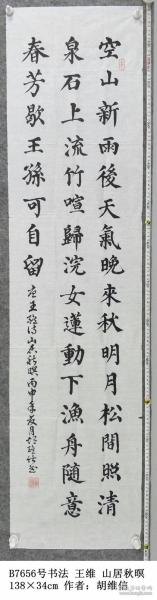 空山新雨後天氣晚來秋明月松間照清
泉石上流竹喧歸浣女蓮動下漁舟隨意
春芳歇王孫可自留
唐王維詩山居秋暝丙申年
B7656号书法 王维 山居秋暝
138×34cm 作者：胡维信